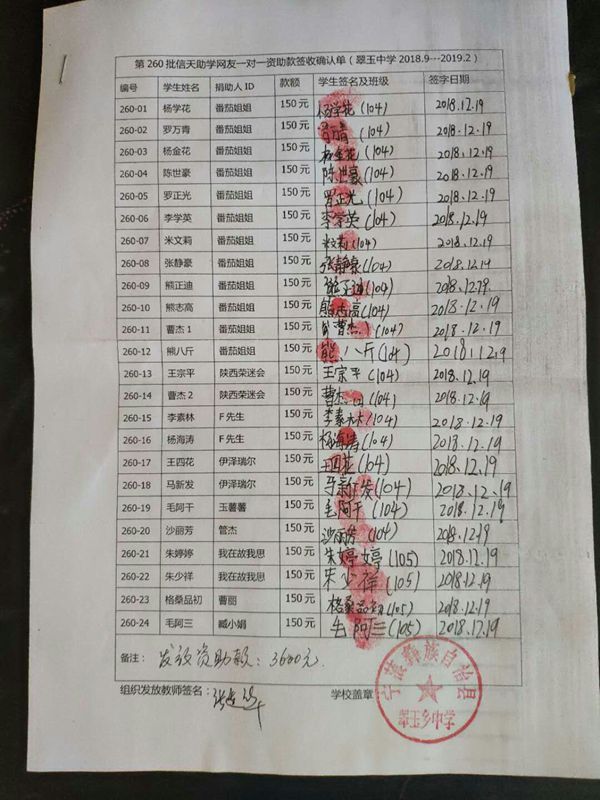 第 260 批信天助学网友一对一资助款签收确认单（翠玉中学 2018.9---2019.2）
编号 学生姓名 捐助人 ID 款额 学生签名及班级 签字日期
260-01 杨学花 番茄姐姐 150 元 杨学花(104) 2018.12.19
260-02 罗万青 番茄姐姐 150 元 罗万青(104) 2018.12.19
260-03 杨金花 番茄姐姐 150 元 杨金花(104) 2018.12.19
260-04 陈世豪 番茄姐姐 150 元 陈世豪(104) 2018.12.19
260-05 罗正光 番茄姐姐 150 元 罗正光(104) 2018.12.19
260-06 李学英 番茄姐姐 150 元 李学英(104) 2018.12.19
260-07 米文莉 番茄姐姐 150 元 米文莉(104) 2018.12.19
260-08 张静豪 番茄姐姐 150 元 张静豪(104) 2018.12.19
260-09 熊正迪 番茄姐姐 150 元 熊正迪(104) 2018.12.19.
260-10 熊志高 番茄姐姐 150 元 熊志高(104) 2018.12.19
260-11 曹杰 1 番茄姐姐 150 元 曹杰1(104) 2018.12.19
260-12 熊八斤 番茄姐姐 150 元 熊八斤(104) 2018.12.19
260-13 王宗平 陕西荣迷会 150 元 王宗平(104) 2018.12.19
260-14 曹杰 2 陕西荣迷会 150 元 曹杰(104) 2018.12.19
260-15 李素林 F 先生 150 元 李素林(104) 2018.12.19
260-16 杨海涛 F 先生 150 元 杨海涛(104) 2018.12.19
260-17 王四花 伊泽瑞尔 150 元 王四花(104) 2018.12.19
260-18 马新发 伊泽瑞尔 150 元 马新发(104) 2018.12.19
260-19 毛阿干 玉薯薯 150 元 毛阿干(104) 2018.12.19
260-20 沙丽芳 管杰 150 元 沙丽芳(104) 2018.12.19
260-21 朱婷婷 我在故我思 150 元 朱婷婷(105) 2018.12.19
260-22 朱少祥 我在故我思 150 元 朱少祥(105) 2018.12.19
260-23 格桑品初 曹丽 150 元 格桑品初(105) 2018.12.19
260-24 毛阿三 臧小娟 150 元 毛阿三(105) 2018.12.19
备注： 发放资助款：3600元.
组织发放教师签名： 学校盖章：
宁蒗彝族自治县
翠玉乡中学